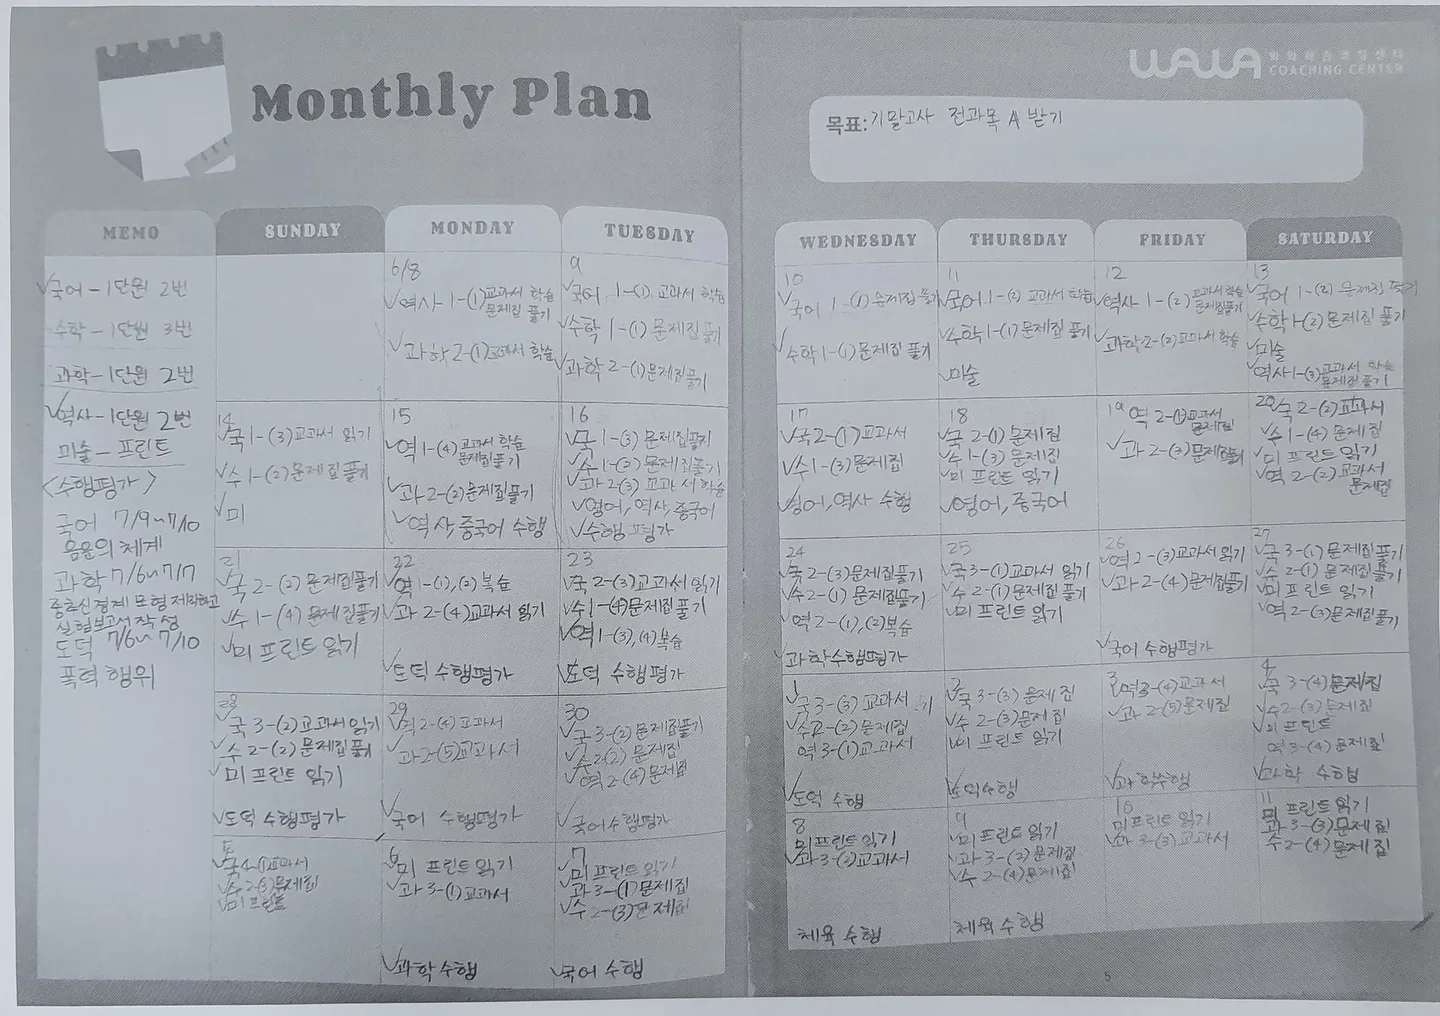 Monthly Plan
WAWA 와와학습코칭센터
COACHING CENTER
목표: 기말고사 전과목 A 받기
MEMO
✓국어 - 1단원 2번
수학 - 1단원 3번
과학 - 1단원 2번
✓역사 - 1단원 2번
미술 - 프린트
<수행평가>
국어 7/9~7/10
음운의 체계
과학 7/6~7/7
중추신경계 모형 제작하고
실험보고서 작성
도덕 7/6~7/10
폭력 행위
SUNDAY
MONDAY
TUESDAY
WEDNESDAY
THURSDAY
FRIDAY
SATURDAY
6/8
✓역사 1-(1) 교과서 학습
문제집 풀기
✓과학 2-(1) 교과서 학습
9
✓국어 1-(1) 교과서 학습
✓수학 1-(1) 문제집 풀기
✓과학 2-(1) 문제집 풀기
10
✓국어 1-(1) 문제집 풀기
✓수학 1-(1) 문제집 풀기
11
✓국어 1-(2) 교과서 학습
✓수학 1-(1) 문제집 풀기
✓미술
12
✓역사 1-(2) 교과서 학습
문제집 풀기
✓과학 2-(2) 교과서 학습
13
✓국어 1-(2) 문제집
✓수학 1-(2) 문제집 풀기
✓미술
✓역사 1-(3) 교과서 학습
문제집 풀기
14
✓국 1-(3) 교과서 읽기
✓수 1-(2) 문제집 풀기
✓미
15
✓역 1-(4) 교과서 학습
문제집 풀기
✓과 2-(2) 문제집 풀기
✓역사, 중국어 수행
16
✓국 1-(3) 문제집
✓수 1-(2) 문제집 풀기
✓과 2-(3) 교과서 학습
✓영어, 역사, 중국어
✓수행 평가
17
✓국 2-(1) 교과서
✓수 1-(3) 문제집
✓영어, 역사 수행
18
✓국 2-(1) 문제집
✓수 1-(3) 문제집
✓미 프린트 읽기
✓영어, 중국어
19
✓역 2-(1) 교과서
문제집
✓과 2-(3) 문제집 풀기
20
✓국 2-(2) 교과서
✓수 1-(4) 문제집
✓미 프린트 읽기
✓역 2-(2) 교과서
문제집
21
✓국 2-(2) 문제집 풀기
✓수 1-(4) 문제집 풀기
✓미 프린트 읽기
22
✓역 1-(1), (2) 복습
✓과 2-(4) 교과서 읽기
✓도덕 수행평가
23
✓국 2-(3) 교과서 읽기
✓수 1-(4) 문제집 풀기
✓역 1-(3), (4) 복습
✓도덕 수행 평가
24
✓국 2-(3) 문제집 풀기
✓수 2-(1) 문제집 풀기
✓역 2-(1), (2) 복습
✓과학 수행평가
25
✓국 3-(1) 교과서 읽기
✓수 2-(1) 문제집 풀기
✓미 프린트 읽기
26
✓역 2-(3) 교과서 읽기
✓과 2-(4) 문제집 풀기
✓국어 수행평가
27
✓국 3-(1) 문제집 풀기
✓수 2-(1) 문제집 풀기
✓미 프린트 읽기
✓역 2-(3) 문제집 풀기
28
✓국 3-(2) 교과서 읽기
✓수 2-(2) 문제집 풀기
✓미 프린트 읽기
✓도덕 수행평가
29
✓역 2-(4) 교과서
✓과 2-(5) 교과서
✓국어 수행평가
30
✓국 3-(2) 문제집 풀기
✓수 2-(2) 문제집
✓역 2-(4) 문제집
✓국어 수행평가
1
✓국 3-(3) 교과서
✓수 2-(2) 문제집
역 3-(1) 교과서
✓도덕 수행
2
✓국 3-(3) 문제집
✓수 2-(3) 문제집
✓미 프린트 읽기
✓도덕 수행
3
✓역 3-(4) 교과서
✓과 2-(5) 문제집
✓과학수행
4
✓국 3-(4) 문제집
✓수 2-(3) 문제집
✓미 프린트
역 3-(4) 문제집
✓과학 수행
5
✓국 4-(1) 교과서
✓수 2-(3) 문제집
✓미 프린트
6
✓미 프린트 읽기
✓과 3-(1) 교과서
✓과학 수행
7
✓미 프린트 읽기
✓과 3-(1) 문제집
✓수 2-(3) 문제집
✓국어 수행
8
미 프린트 읽기
✓과 3-(2) 교과서
체육 수행
9
✓미 프린트 읽기
✓과 3-(2) 문제집
✓수 2-(4) 문제집
체육 수행
10
미 프린트 읽기
✓과 3-(3) 교과서
11
미 프린트 읽기
과 3-(3) 문제집
수 2-(4) 문제집
5